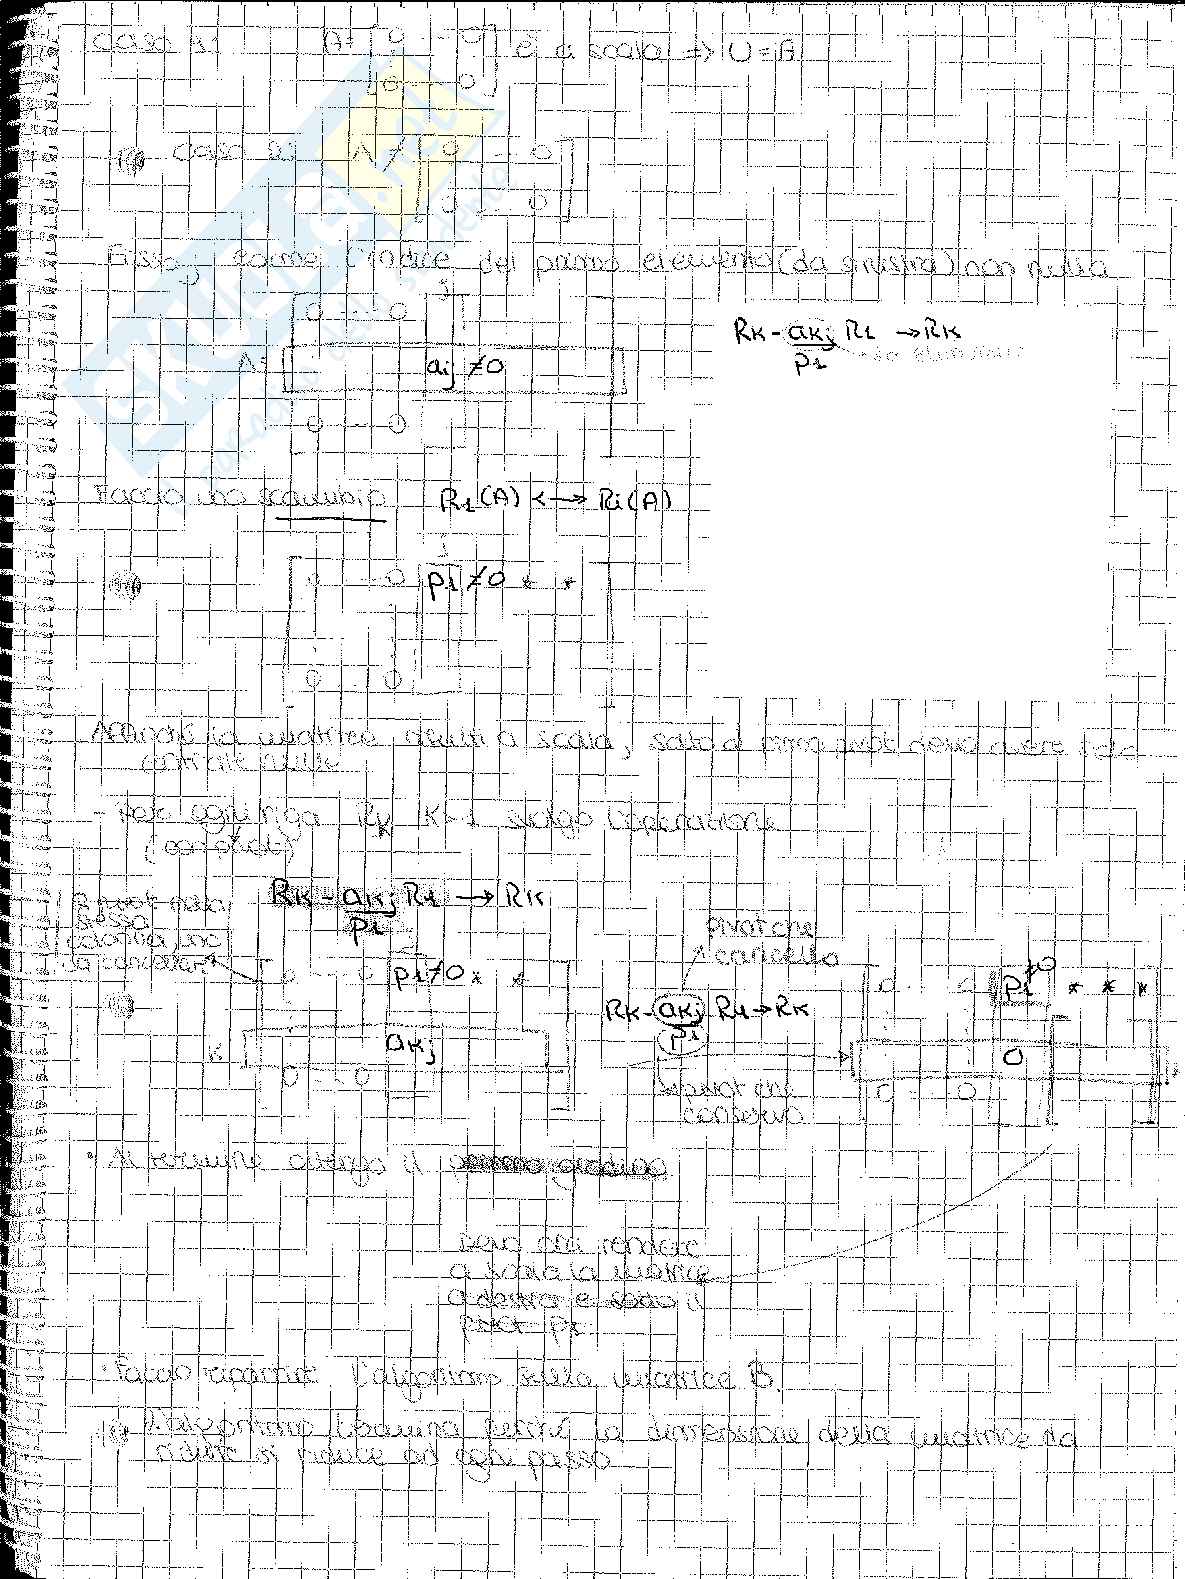 Caso 1: A = [0 ... 0
0 ... 0] è a scala ⇒ U = A
Caso 2: A ≠ [0 ... 0
0 ... 0]
Fisso j come l'indice del primo elemento (da sinistra) non nullo
j
0 ... 0
A = aij ≠ 0
0 ... 0
Rk - akj/p1 R1 → Rk
Faccio uno scambio R1(A) ↔ Ri(A)
j
0 ... 0 p1 ≠ 0 * *
0 0
Affinché la matrice diventi a scala, sotto il primo pivot devo avere solo
entrate nulle
- Per ogni riga Rk k>1 svolgo l'operazione
(con pivot)
Rk - akj/p1 R1 → Rk
pivot nella
stessa
colonna,
da cancellare
0 ... 0 p1 ≠ 0 * *
k akj
0 ... 0
pivot che
cancello
Rk - akj/p1 R1 → Rk
pivot che
conservo
0 .. 0 p1 ≠0 * * *
0
0 ... 0
• Al termine ottengo il primo gradino
devo ora rendere
a scala la matrice
a destra e sotto il
pivot p1
• Faccio ripartire l'algoritmo sulla matrice B.
L'algoritmo termina perché la dimensione della matrice da
ridurre si riduce ad ogni passo